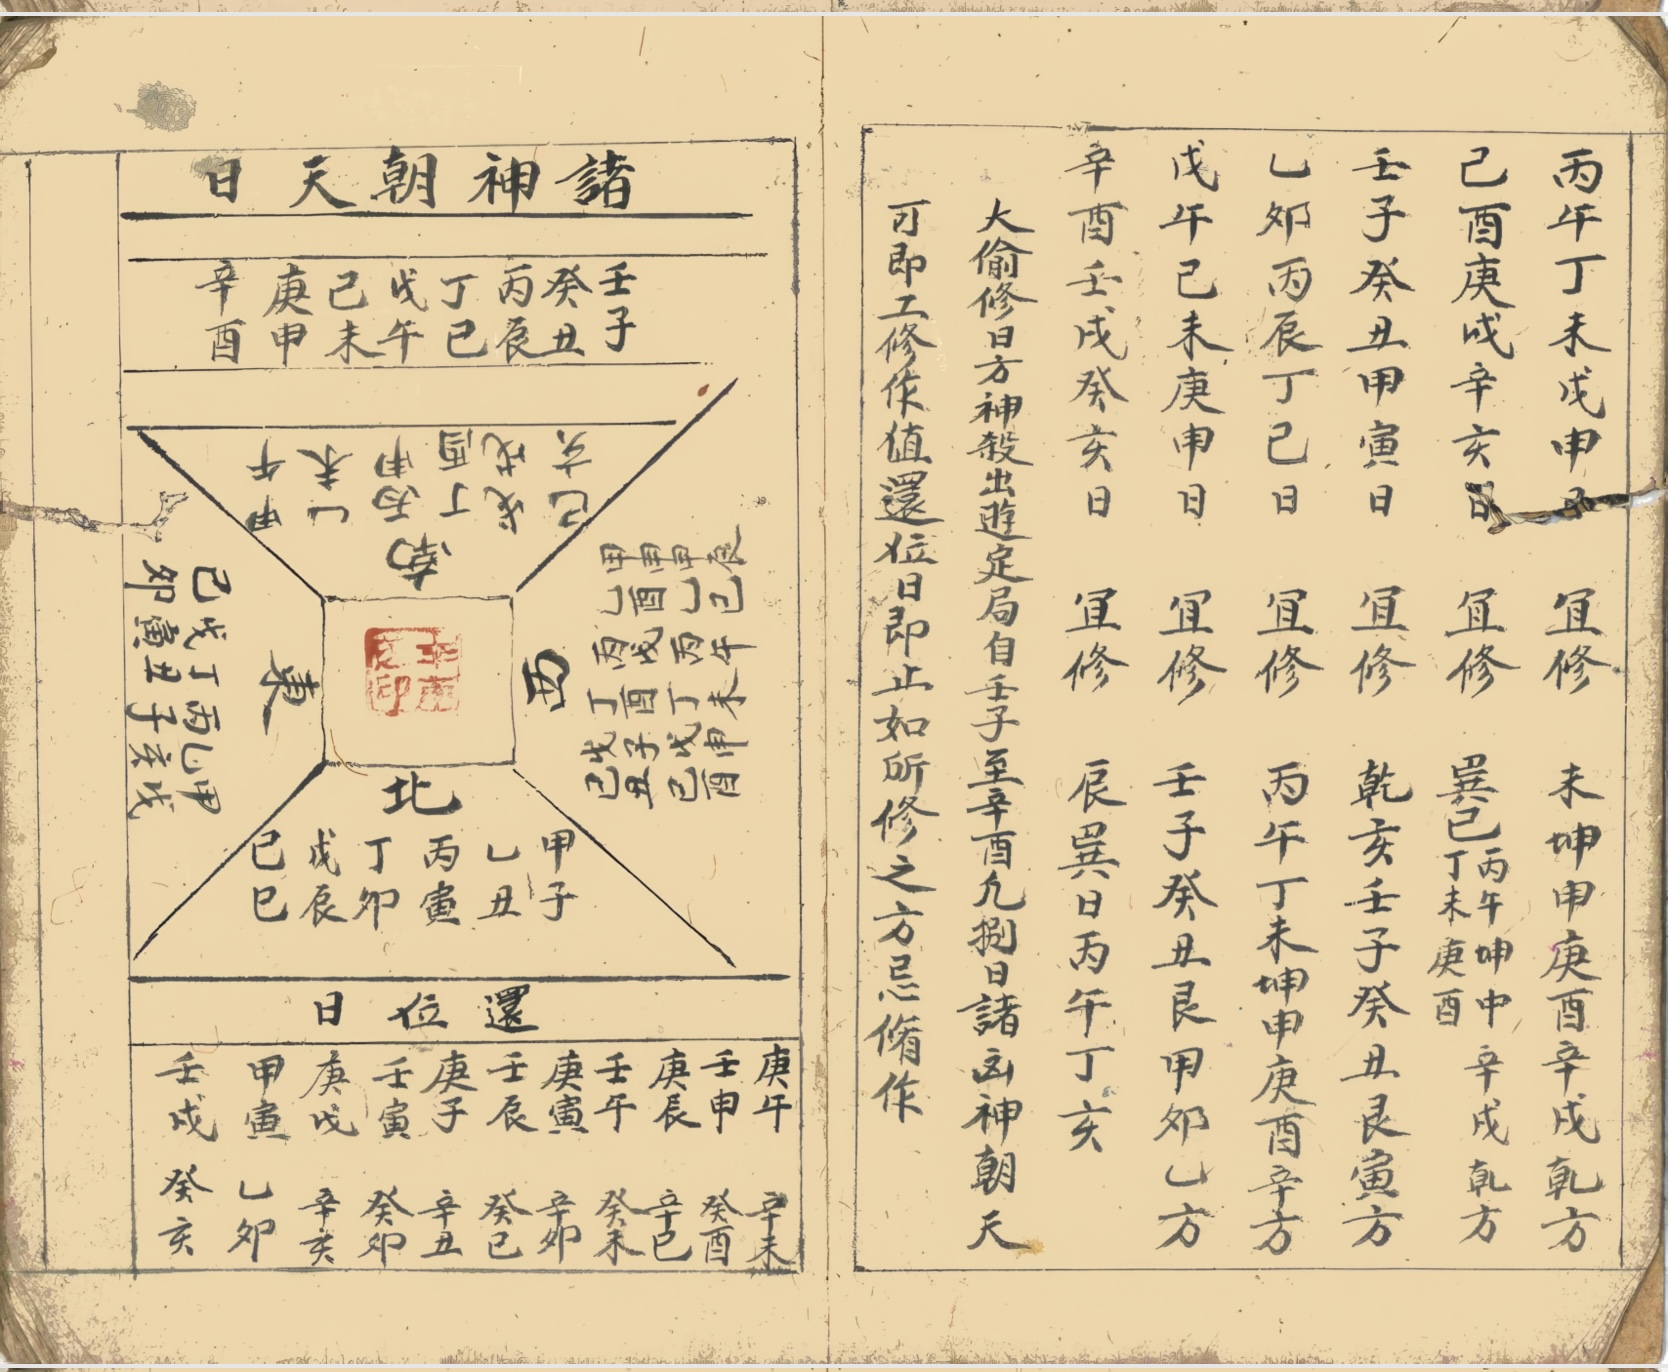 丙午丁未戊申日 宜修 未坤申庚酉辛戌乾方
己酉庚戌辛亥日 宜修 巽巳丙午坤中丁未庚酉辛戌乾方
壬子癸丑甲寅日 宜修 乾亥壬子癸丑艮寅方
乙卯丙辰丁巳日 宜修 丙午丁未坤申庚酉辛方
戊午己未庚申日 宜修 壬子癸丑艮甲卯乙方
辛酉壬戌癸亥日 宜修 辰巽日丙午丁亥
大偷修日方神殺出遊定局自壬子至辛酉凢捌日諸凶神朝天
可即工修作值還位日即止如所修之方忌脩作
諸神朝天日
壬子
癸丑
丙辰
丁巳
戊午
己未
庚申
辛酉
南
甲午
乙未
丙申
丁酉
戊戌
己亥
西
辰巳午未申酉
甲乙丙丁戊己
甲酉戌酉子丑
甲乙丙丁戊己
東
甲乙丙丁戊己
戌亥子丑寅卯
北
甲子
乙丑
丙寅
丁卯
戊辰
己巳
還位日
庚午 辛未
壬申 癸酉
庚辰 辛巳
壬午 癸未
庚寅 辛卯
壬辰 癸巳
庚子 辛丑
壬寅 癸卯
庚戌 辛亥
甲寅 乙卯
壬戌 癸亥